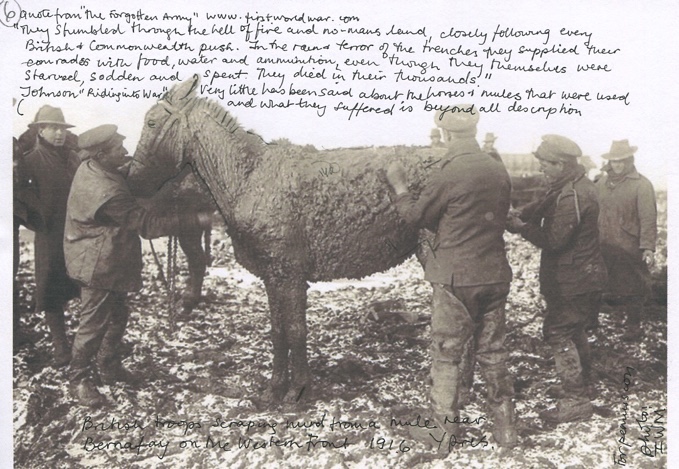 (6) Quote from "The Forgotten Army" www.firstworldwar.com
"They stumbled through the hell of fire and no-mans land, closely following every
British & Commonwealth push. In the rain & terror of the trenches they supplied their
comrades with food, water and ammunition, even though they themselves were
starved, sodden and spent. They died in their thousands."
Johnson "Riding into War" Very little has been said about the horses & mules that were used
( and what they suffered is beyond all description
British troops scraping mud from a mule near
Bernafay on the Western Front 1916 Ypres.
permission
Photo
IWM